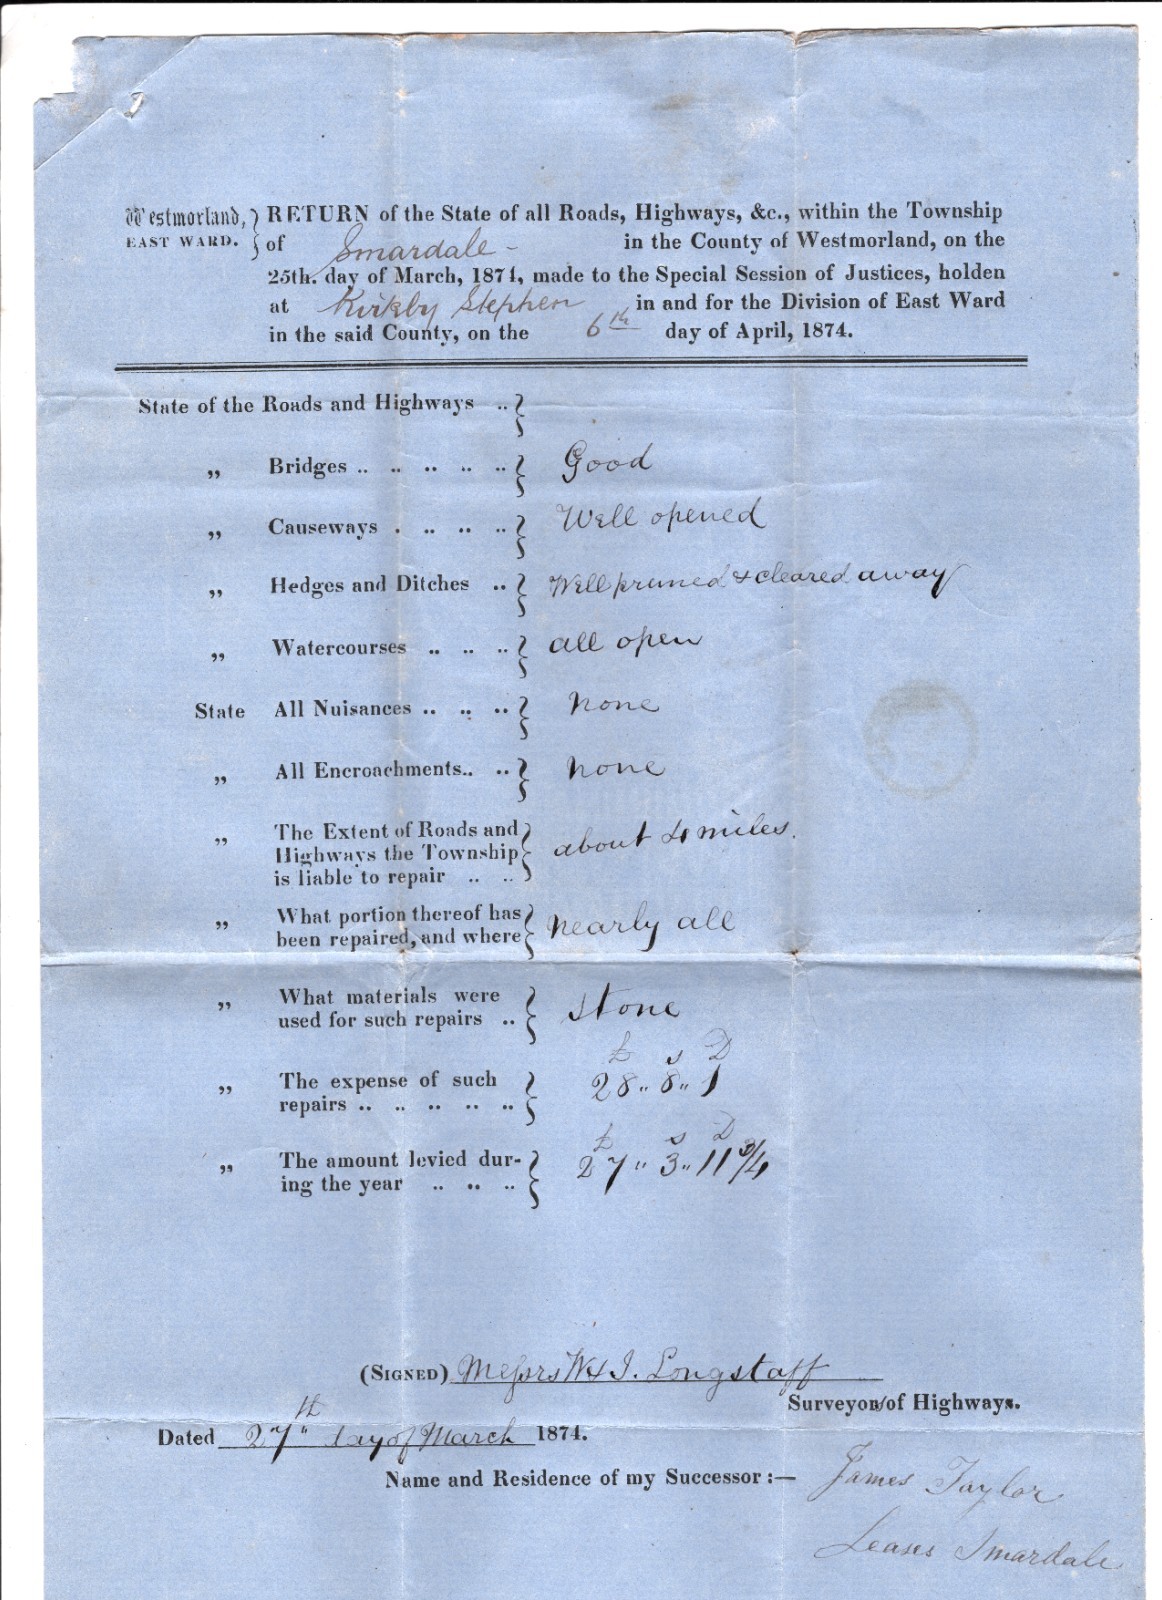 Westmorland, } RETURN of the State of all Roads, Highways, &c., within the Township
EAST WARD. } of Smardale - in the County of Westmorland, on the
25th. day of March, 1874, made to the Special Session of Justices, holden
at Kirkby Stephen in and for the Division of East Ward
in the said County, on the 6th day of April, 1874.
State of the Roads and Highways .. }
„ Bridges .. .. .. .. .. } Good
„ Causeways . .. .. .. } Well opened
„ Hedges and Ditches .. } Well pruned & cleared away
„ Watercourses .. .. .. } all open
State All Nuisances .. .. .. } none
„ All Encroachments.. .. } none
„ The Extent of Roads and
Highways the Township } about 4 miles.
is liable to repair .. ..
„ What portion thereof has
been repaired, and where } nearly all
„ What materials were
used for such repairs .. } stone
£ s D
„ The expense of such } 28 „ 8 „ 1
repairs .. .. .. .. ..
£ s D
„ The amount levied dur- } 27 „ 3 „ 11 3/4
ing the year .. .. ..
(SIGNED) Messrs W & J. Longstaff
Surveyors of Highways.
Dated 27th day of March 1874.
Name and Residence of my Successor :— James Taylor
Leases Smardale